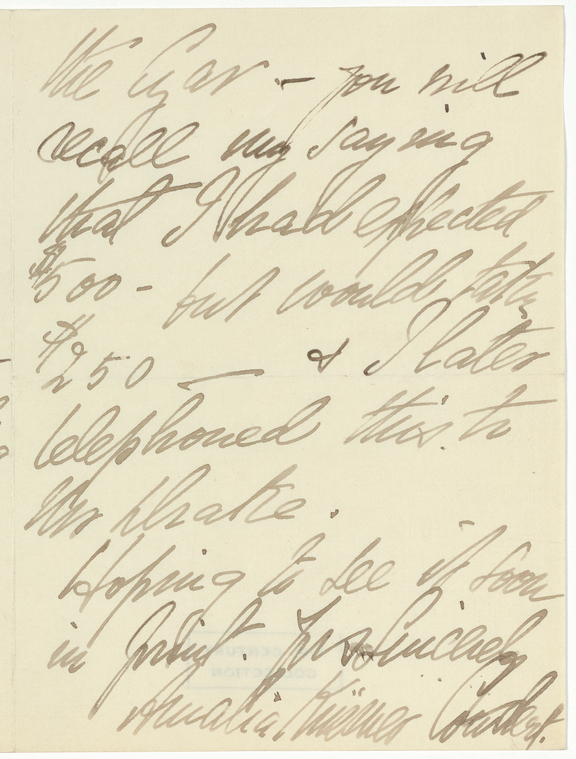 the Czar — you will
recall my saying
that I had expected
$500 – but would take
$250 — & I later
telephoned this to
Mr Drake.
Hoping to see it soon
in print. Yrs sincerely
Amalia Küssner Coudert.
CENTURY
COLLECTION